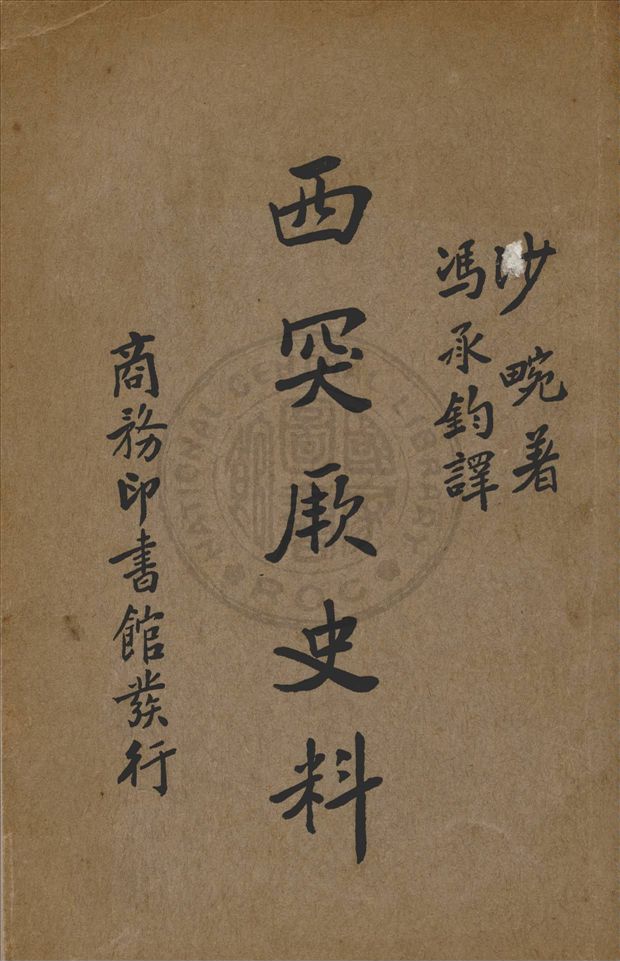 沙畹著
馮承鈞譯
西突厥史料
商務印書館發行
NATIONAL CENTRAL LIBRARY
ROC